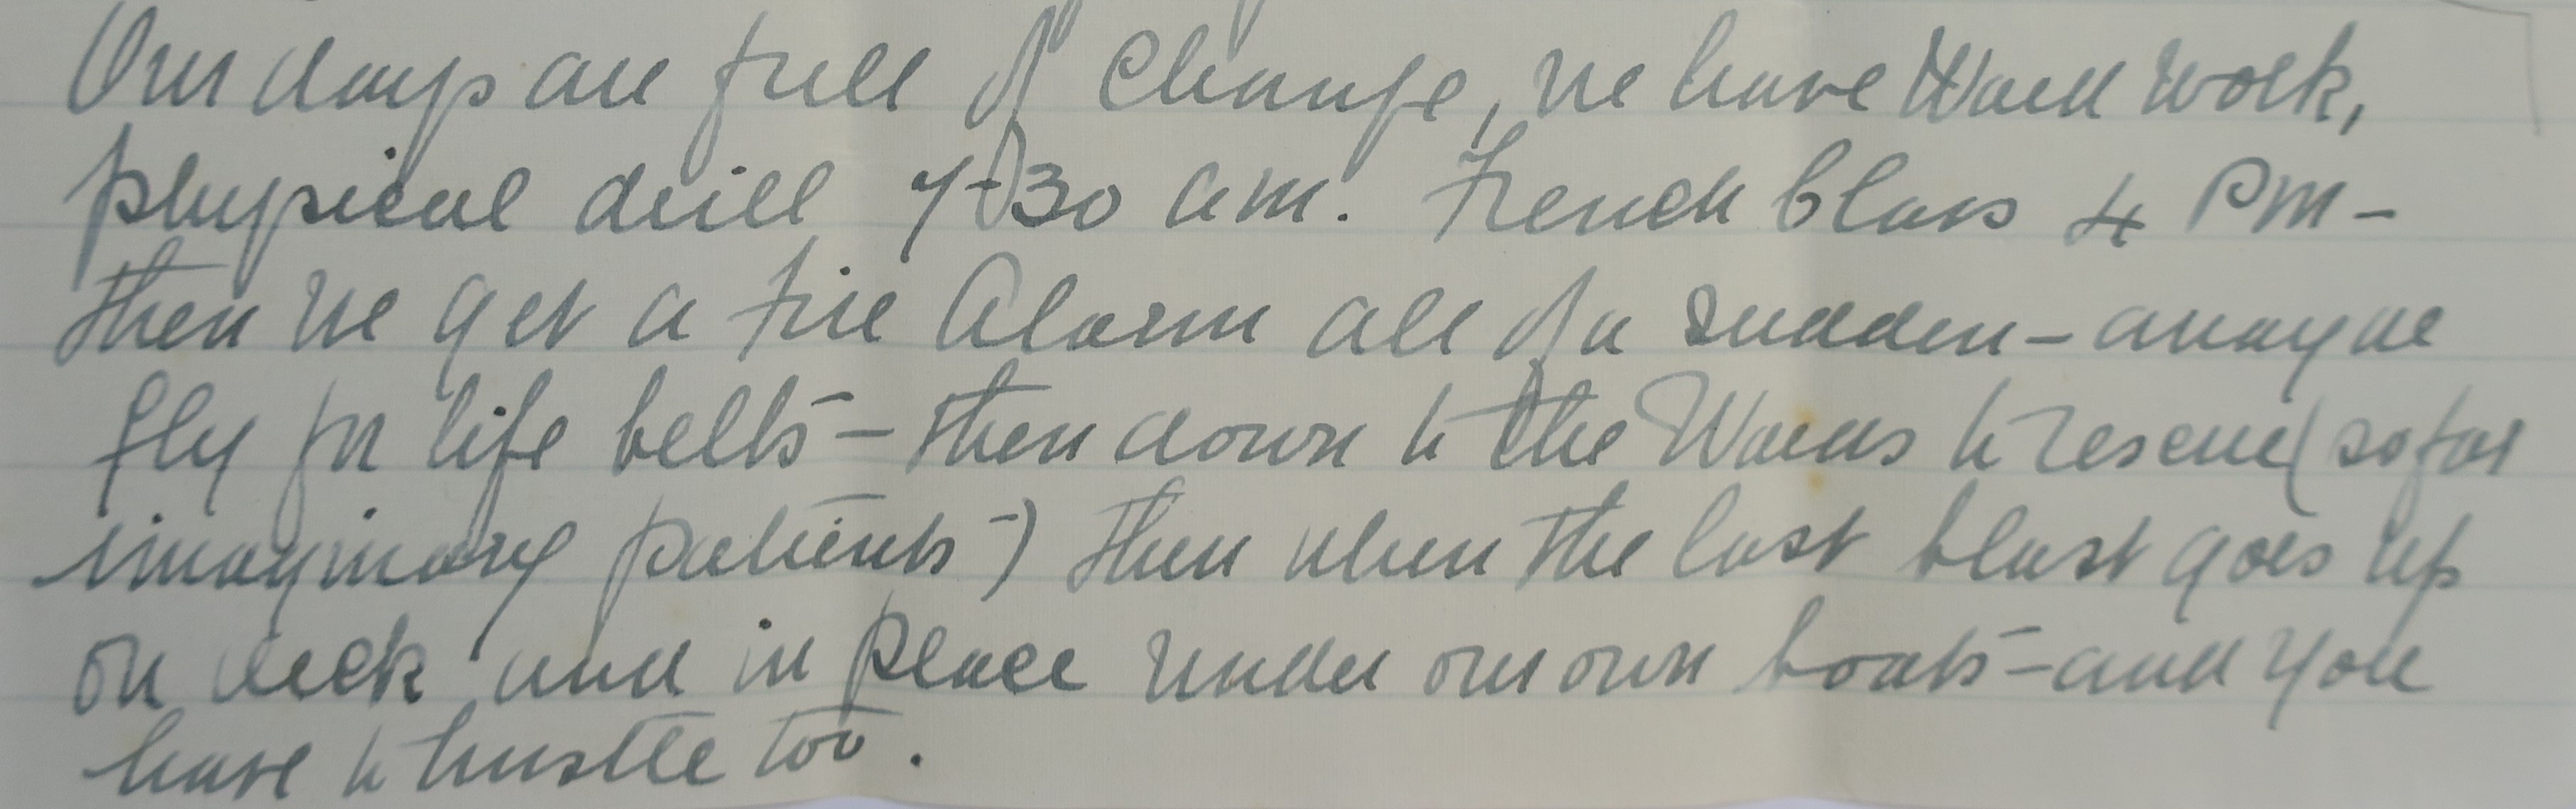 Our days are full of Change, we have Ward Work,
physical drill 7-30 am. French Class 4 PM-
then we get a fire Alarm all of a sudden - away we
fly for life belts - then down to the Wards to rescue (so far
imaginary patients -) then when the last blast goes up
on deck and in place under our own boats - and you
have to hustle too.